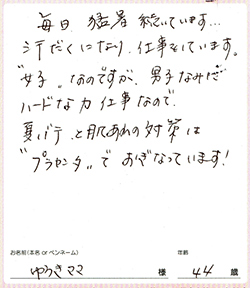 毎日 猛暑 続いています…
汗だくになり、仕事をしています。
"女子"なのですが、男子なみだ
ハードな力仕事なので
夏バテと肌あれの対策は
"プラセンタ"で おぎなっています!
お名前(本名 or ペンネーム) 年齢
ゆうきママ 様 44 歳